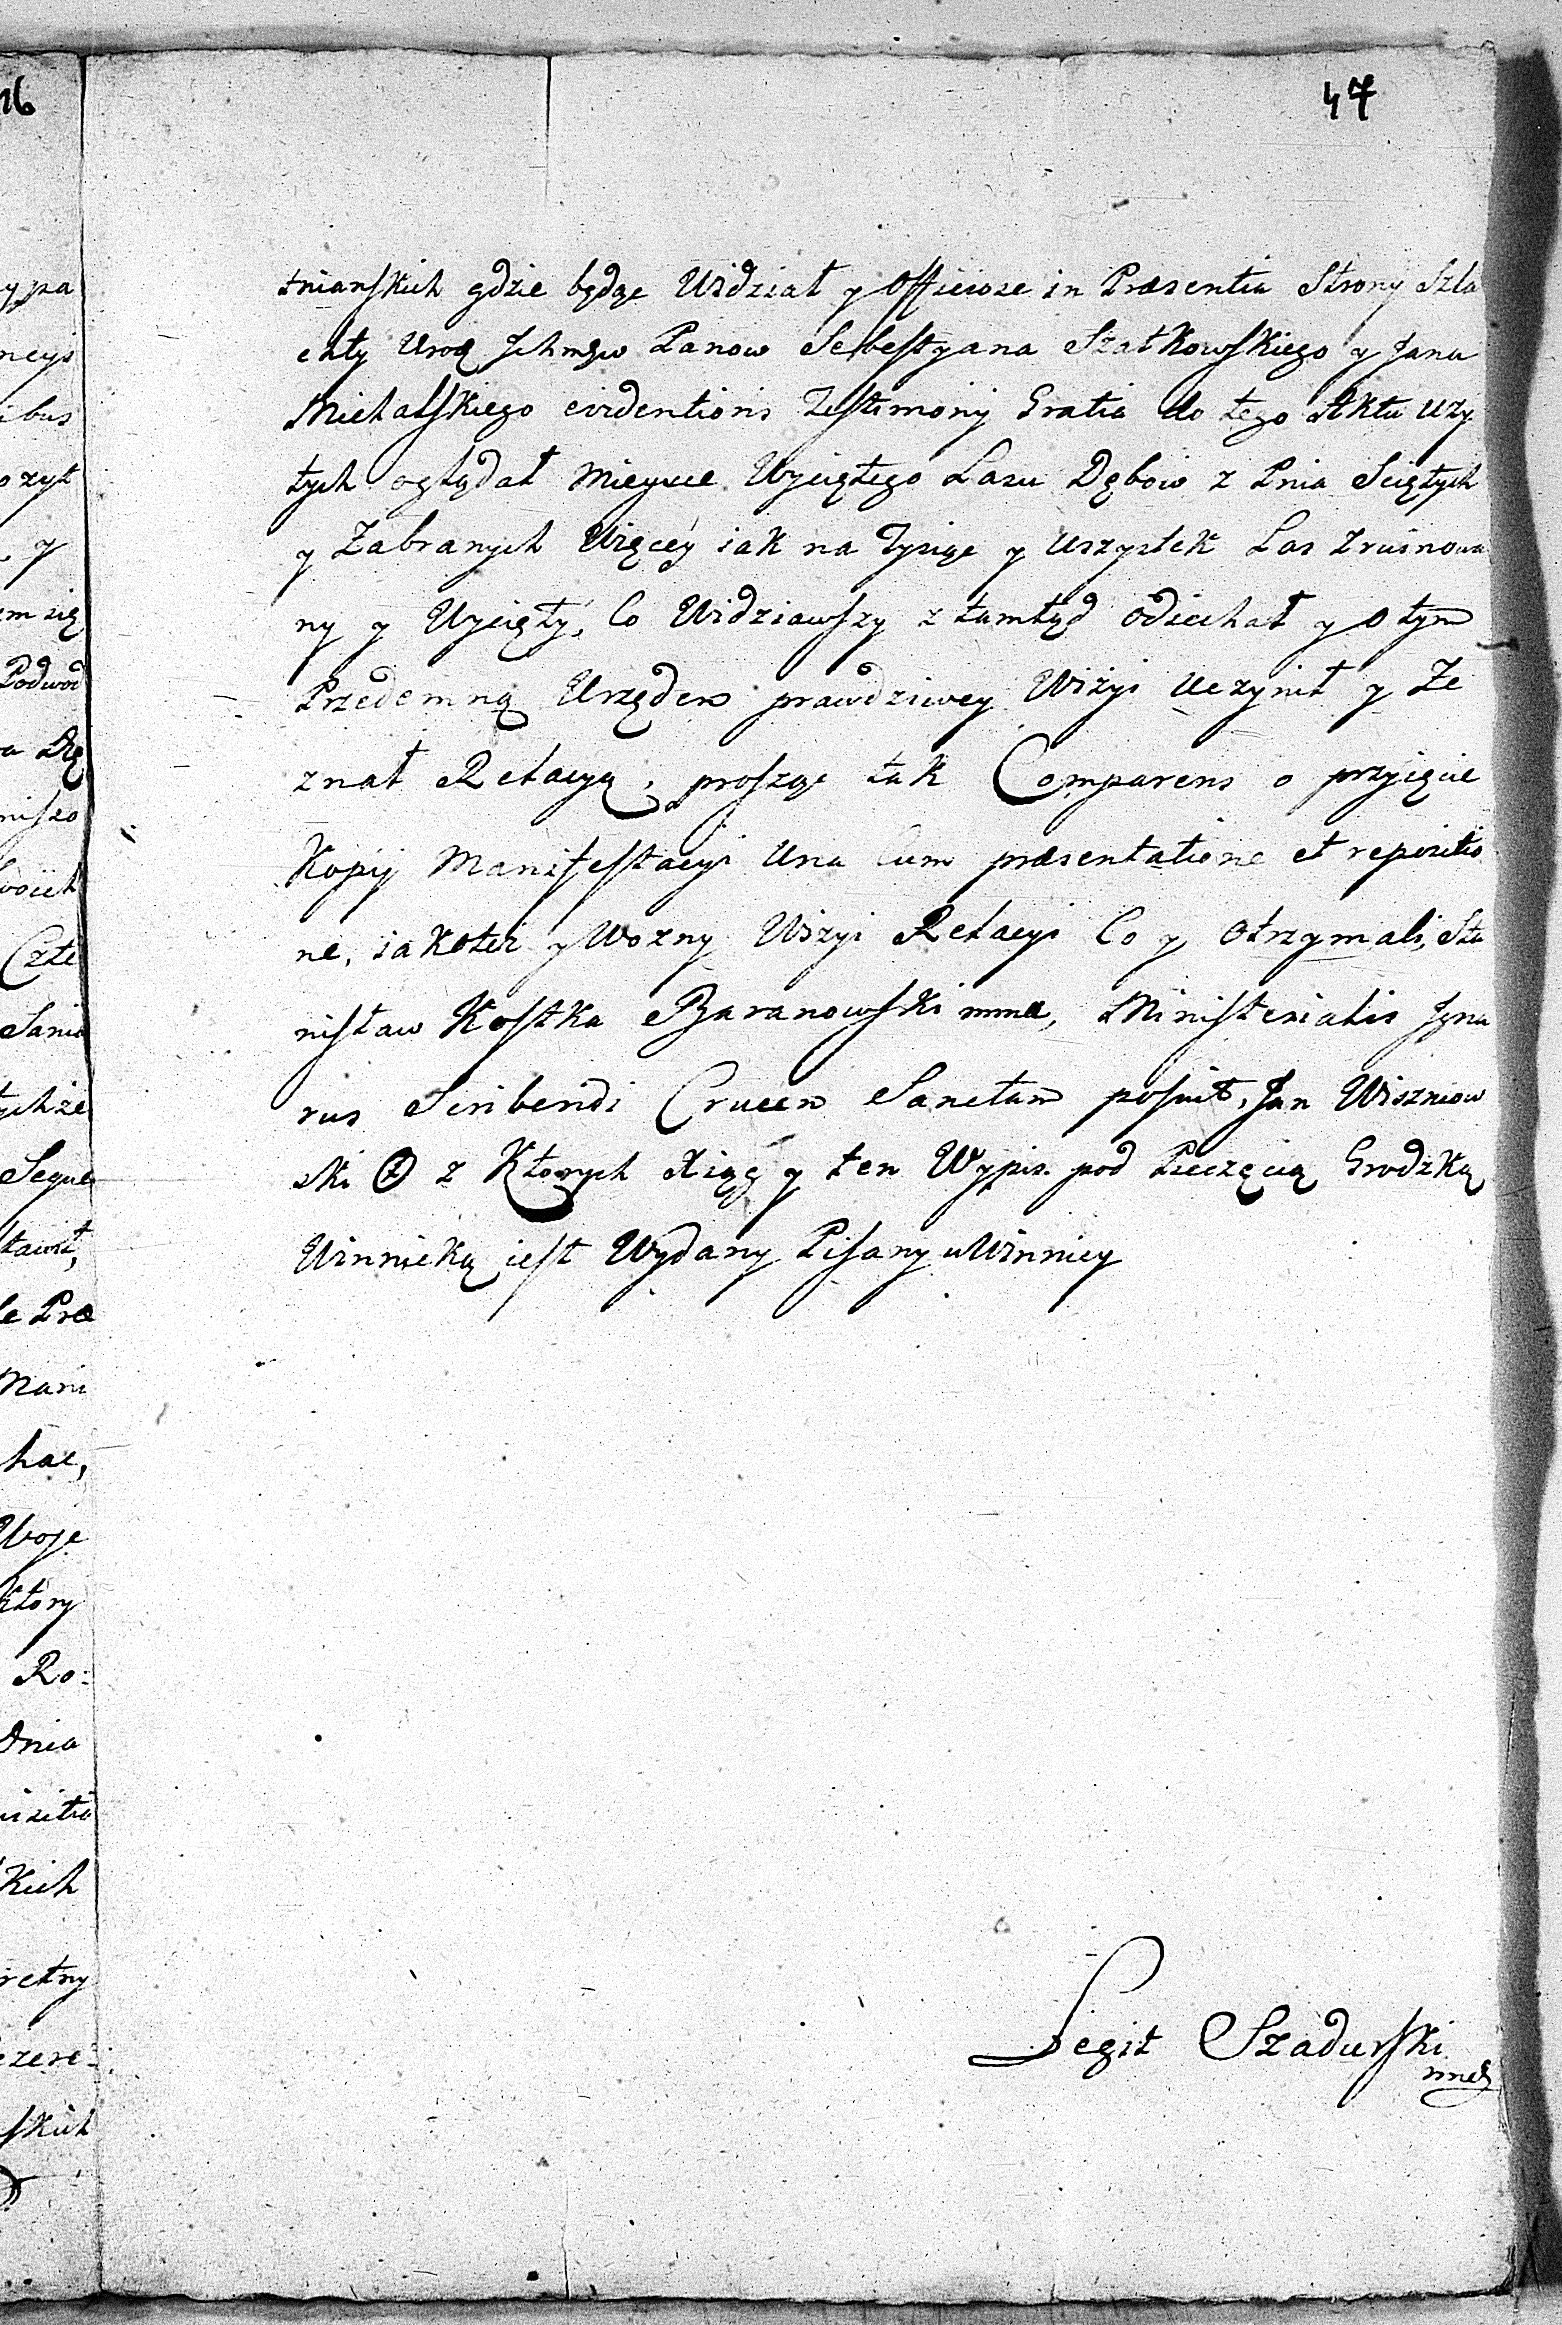 47
tnianskich gdzie będąc Widział y Officiose in Præsentia Strony Szla
chty Uroę Ichmęw Panow Sebestyana Szatkowskiego y Jana
Michalskiego evidentioris Testimonij Gratia do tego Aktu uzy
tych oglądał mieysce Wyciętego Lasu Dębow z Pnia Sciętych
y Zabranych Więcey iak na Tysiąc y wszystek Las Zruinowa
ny y Wycięty, Co Widziawszy z tamtąd odiechał y o tym
Przedemną Urzędem prawdziwey Wizyi Uczynił y Ze
znał Relacyą, prosząc tak Comparens o przyięcie
Kopij Manifestacyi Una Cum præsentatione et repositio
ne, iakoteż y Wozny Wizyi Relacyi Co y otrzymali, Sta
nisław Kostka Baranowski mmp, Ministerialis Igna
rus Scribendi Crucem Sanctam posuit, Jan Wiszniow
ski z Ktorych Xiąg y ten Wypis pod Pieczęcią Grodzką
Winnicką iest Wydany Pisany w Winnicy
Legit Szadurski
mmp
16
ypa
ncyi
ibus
ozył
, y
em się
Podwod
niszo
Czte
Sania
tychże
Seque
tawił,
le Præ
Mani
hac,
Woje
Ktory
Ro:
Dnia
isitio
Kich
retny
czere:
skich